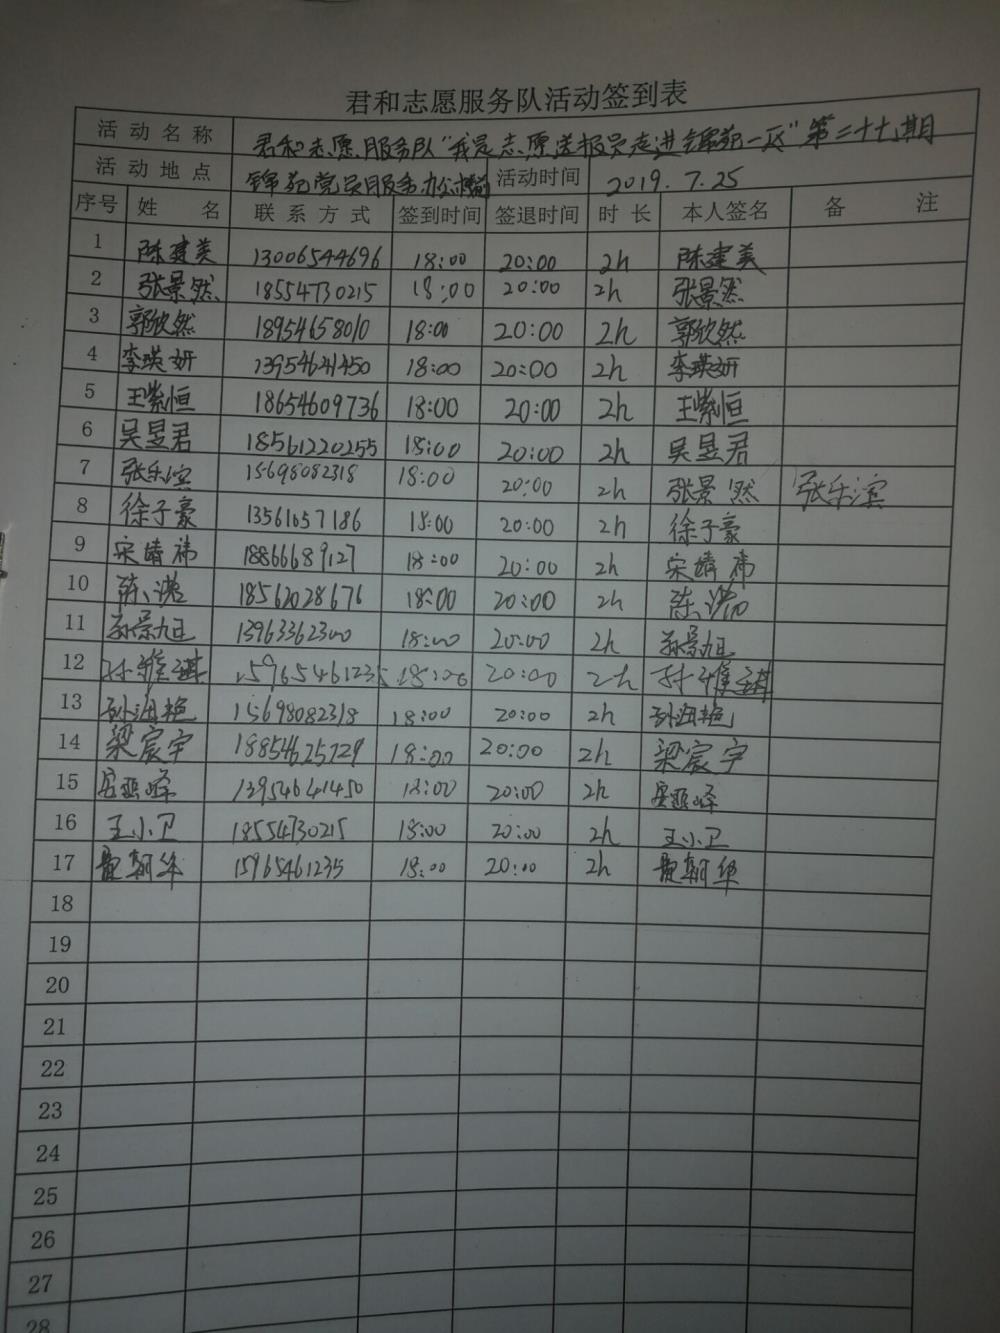 君和志愿服务队活动签到表
活动名称 君和志愿服务队"我是志愿送报员走进锦苑一区"第二十七期
活动地点 锦苑党员服务办公楼前 活动时间 2019.7.25
序号 姓名 联系方式 签到时间 签退时间 时长 本人签名 备注
1 陈建美 13006544696 18:00 20:00 2h 陈建美
2 张景然 18554730215 18:00 20:00 2h 张景然
3 郭欣然 18954658010 18:00 20:00 2h 郭欣然
4 李瑛妍 13954641450 18:00 20:00 2h 李瑛妍
5 王紫恒 18654609736 18:00 20:00 2h 王紫恒
6 吴昱君 18561220255 18:00 20:00 2h 吴昱君
7 张乐滨 15698082318 18:00 20:00 2h 张景然 张乐滨
8 徐子豪 13561657186 18:00 20:00 2h 徐子豪
9 宋婧祎 18866689127 18:00 20:00 2h 宋婧祎
10 陈 18562028676 18:00 20:00 2h 陈
11 孙景旭 13963362300 18:00 20:00 2h 孙景旭
12 孙维 15965461235 18:00 20:00 2h 孙维
13 孙海艳 15698082318 18:00 20:00 2h 孙海艳
14 梁宸宇 18854625729 18:00 20:00 2h 梁宸宇
15 13954641450 18:00 20:00 2h
16 王小卫 18554730215 18:00 20:00 2h 王小卫
17 朝华 15965461235 18:00 20:00 2h 朝华
18
19
20
21
22
23
24
25
26
27
28